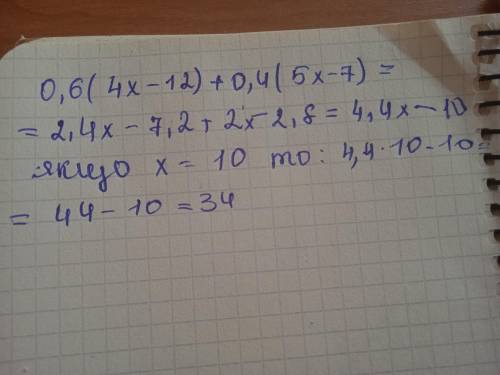 0,6(4x-12)+0,4(5x-7)=
=2,4x-7,2+2x-2,8=4,4x-10
якщо x=10 то: 4,4·10-10=
=44-10=34